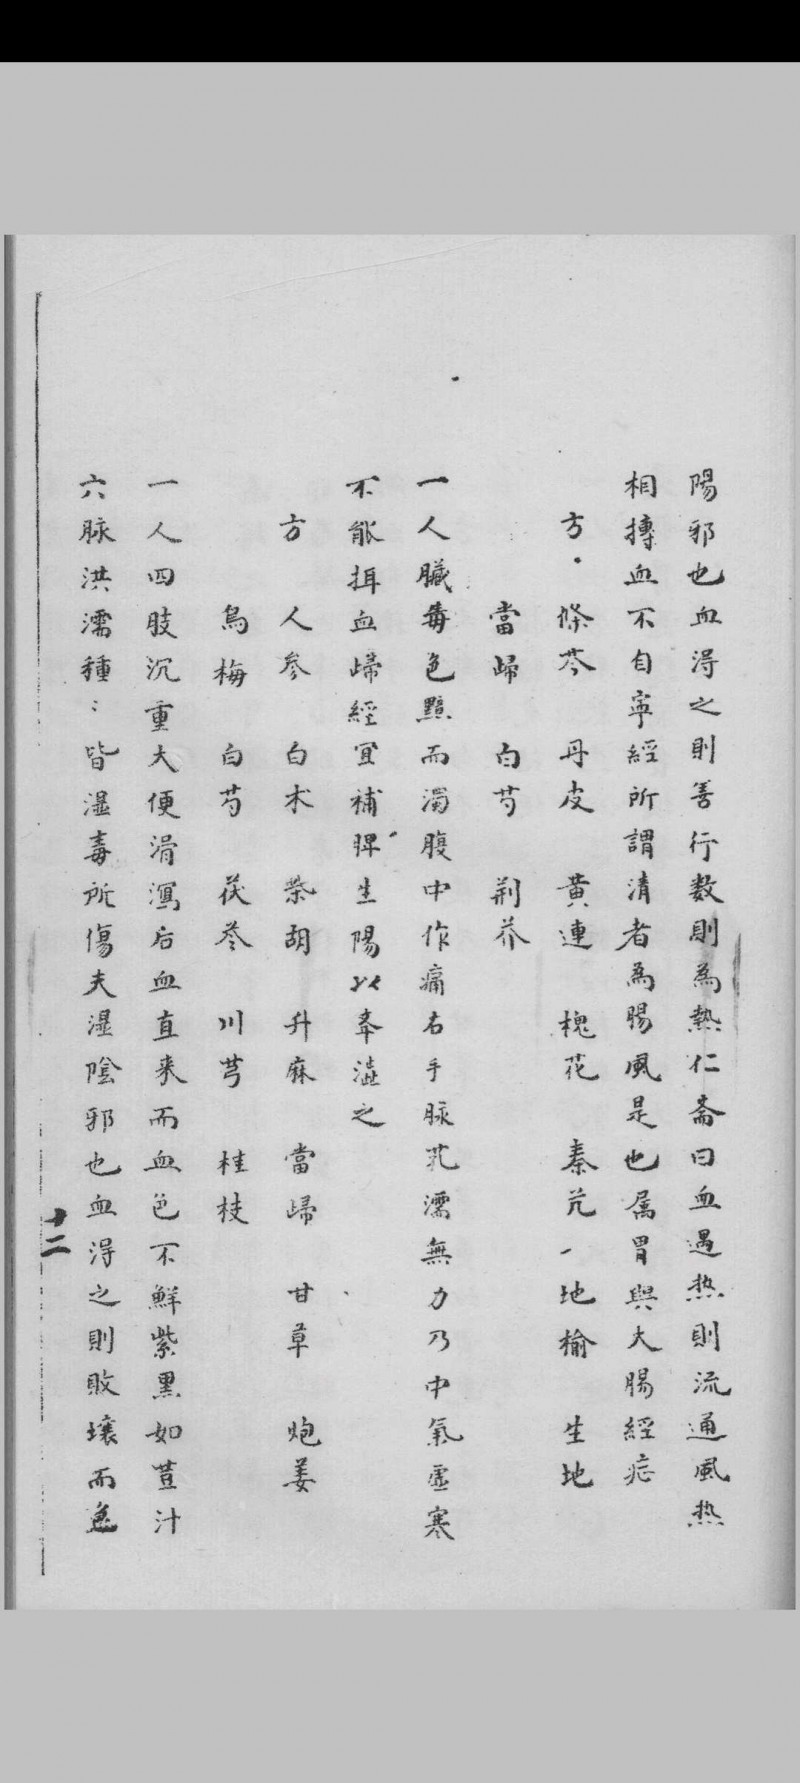 陽邪也血得之則善行数則為熱仁齋曰血遇热則流通風热
相搏血不自寧經所謂清者為腸風是也属胃與大腸經症
方 條芩 丹皮 黄連 槐花 秦艽 地榆 生地
當歸 白芍 荆芥
一人臟毒色黯而濁腹中作痛右手脉芤濡無力乃中氣虚寒
不能揖血歸經宜補脾生陽以奉澁之
方 人参 白术 柴胡 升麻 當歸 甘草 炮姜
烏梅 白芍 茯苓 川芎 桂枝
一人四肢沉重大便滑瀉后血直来而血色不鮮紫黒如荳汁
六脉洪濡種〻皆湿毒所傷夫湿陰邪也血得之則敗壞而
十二